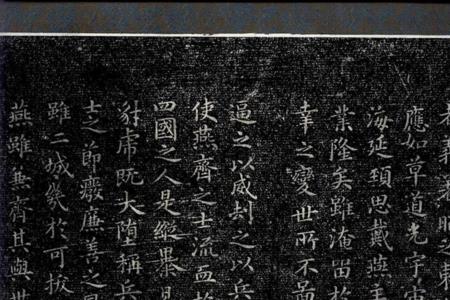 者義著昭之東
應如草道光宇宙
海延頸思戴燕主
業隆矣雖淹留於
幸之變世所不圖
逼之以威劫之以兵
使燕齊之士流血於
四國之人是縱暴易
豺虎既大墮稱兵
士之節廢廉善之風
雖二城幾於可拔
燕雖兼齊其與世